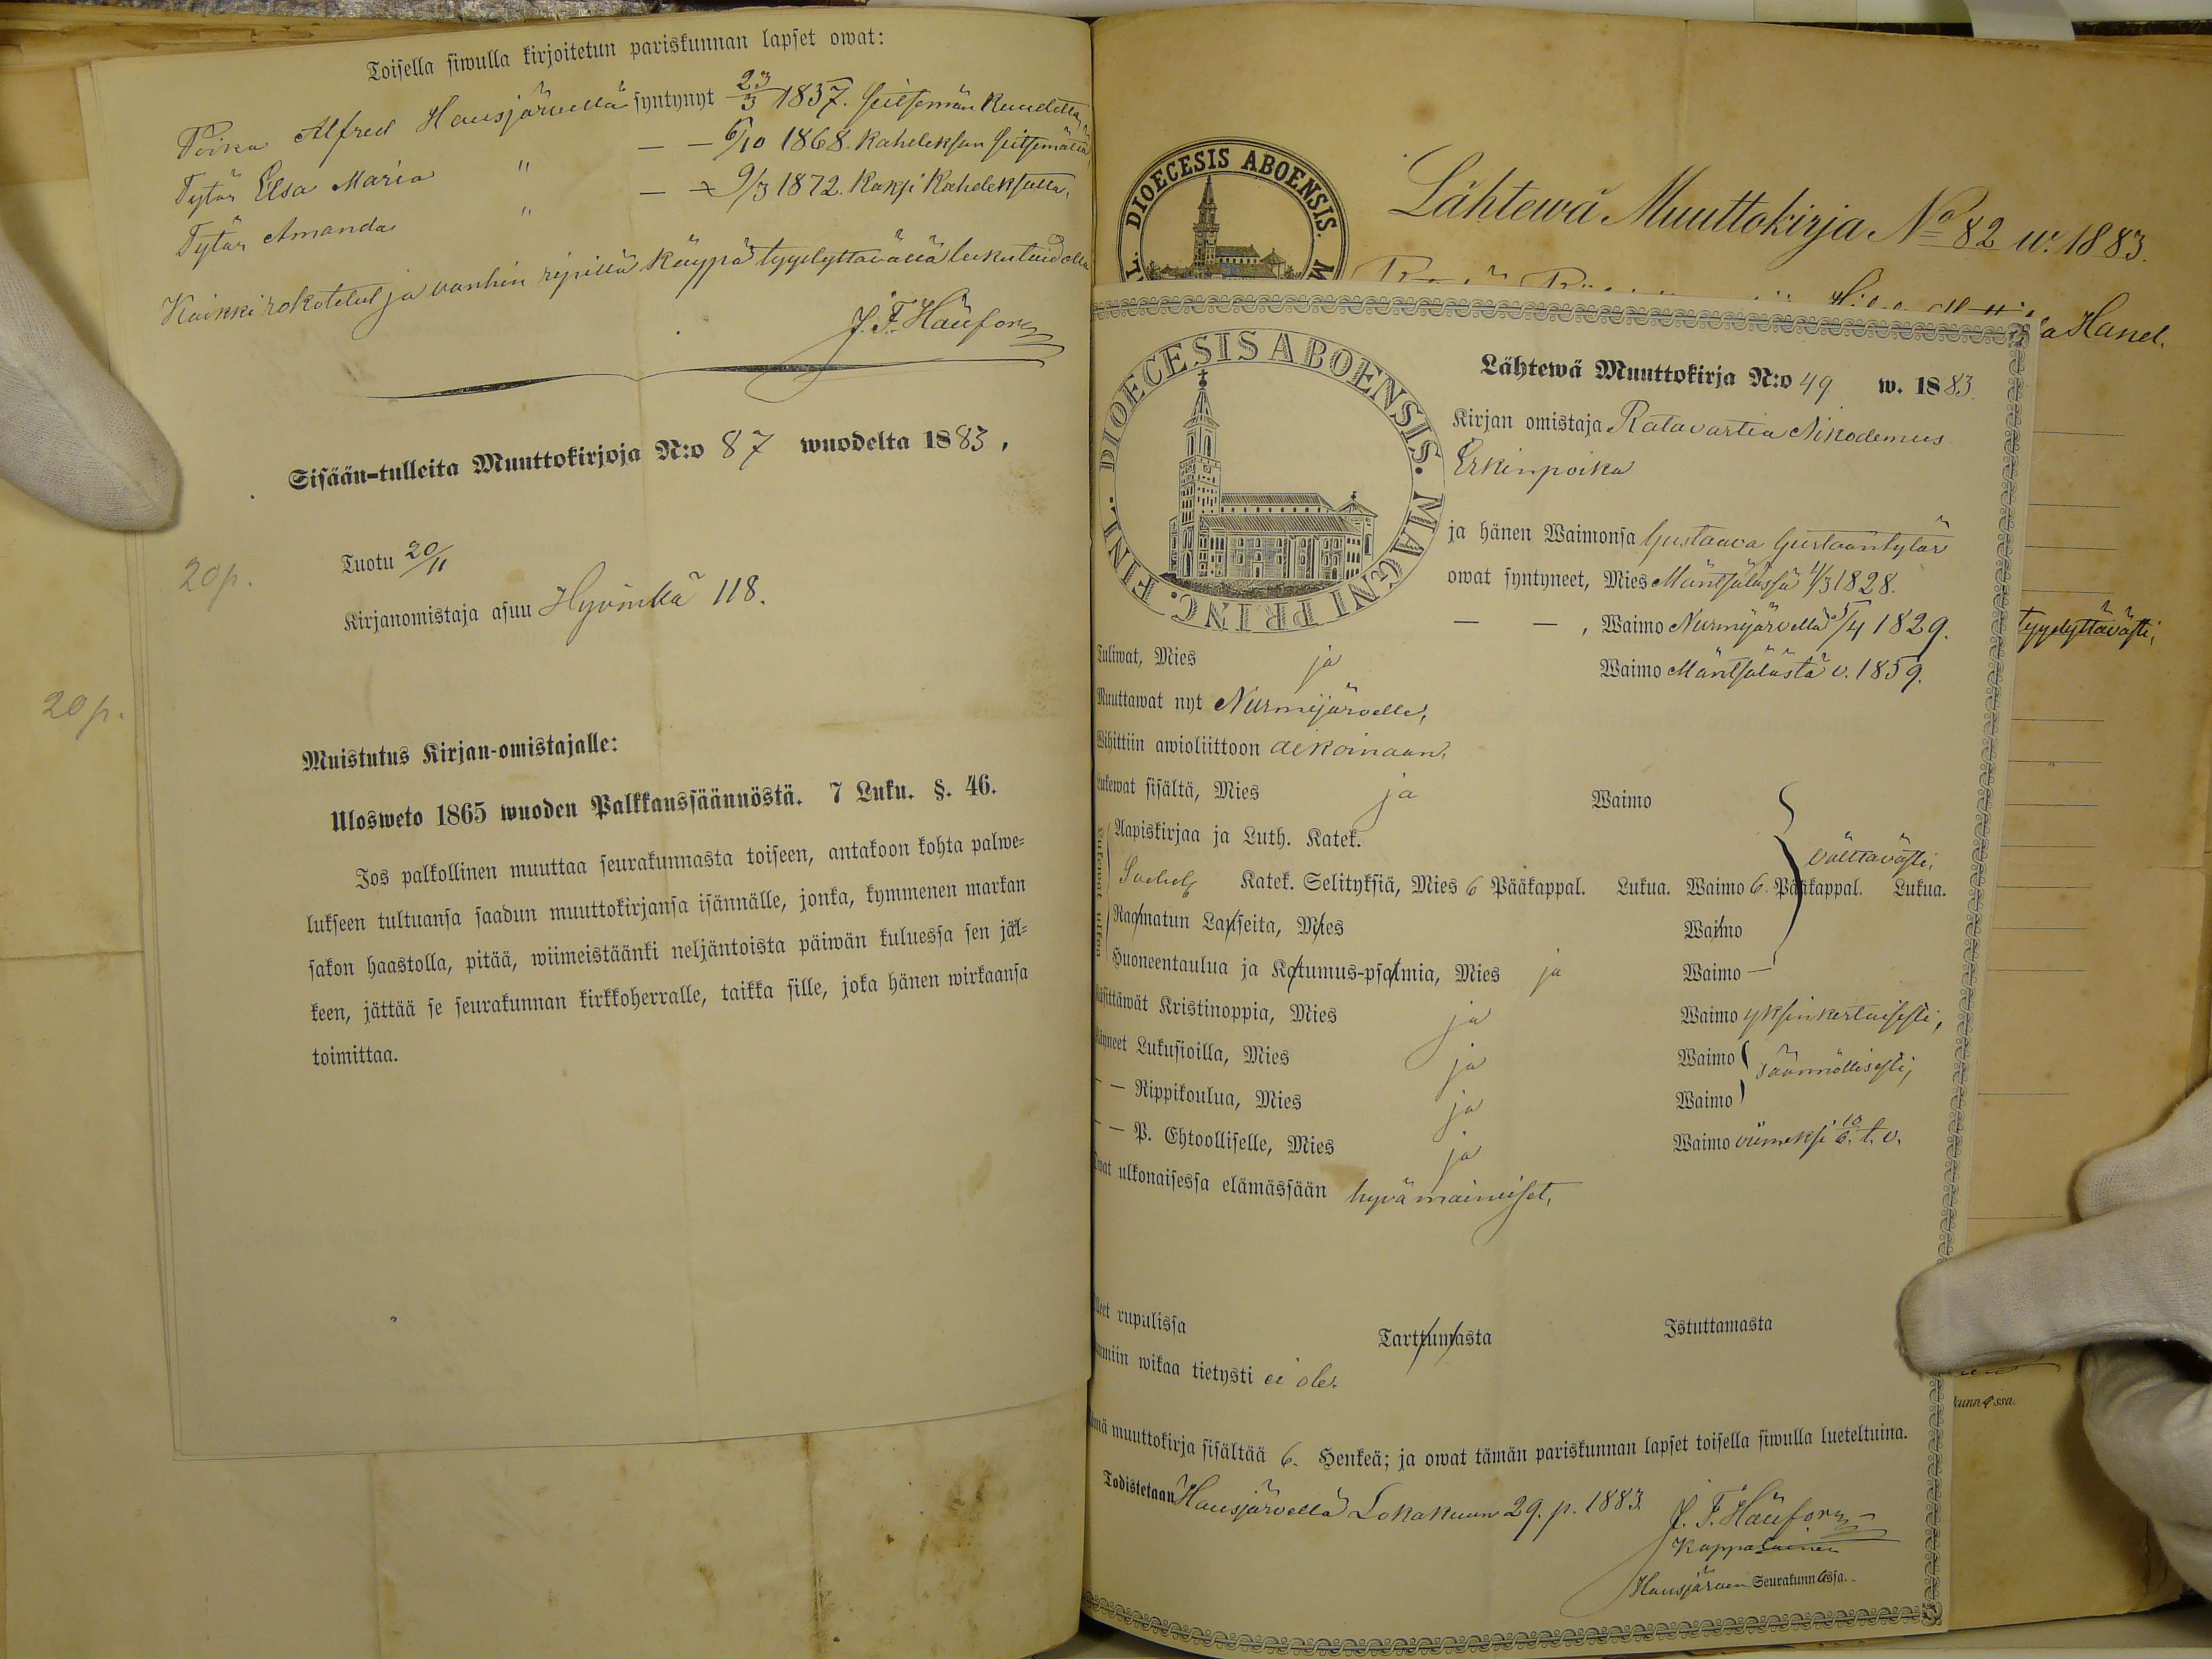 Toisella siwulla kirjoitetun pariskunnan lapset owat:
Poika Alfred Hausjärvellä syntynyt 23/3 1837. Seitsemän kuudetta,
Tytär Elsa Maria " — — 6/10 1868. Kahdeksan Seitsemättä,
Tytär Amanda " — — 9/3 1872. Kaksi Kahdeksatta,
Kaikki rokotetut ja vanhin ripillä käypä tyydyttävällä lukutaidolla
J. F. Häufors
Sisään-tulleita Muuttokirjoja N:o 87 wuodelta 1883.
20p.
Tuotu 20/11
Kirjanomistaja asuu Hyvinkä 118.
20p.
Muistutus Kirjan-omistajalle:
Ulosweto 1865 wuoden Palkkaussäännöstä. 7 Luku. §. 46.
Jos palkollinen muuttaa seurakunnasta toiseen, antakoon kohta palwe-
lukseen tultuansa saadun muuttokirjansa isännälle, jonka, kymmenen markan
sakon haastolla, pitää, wiimeistäänki neljäntoista päiwän kuluessa sen jäl-
keen, jättää se seurakunnan kirkkoherralle, taikka sille, joka hänen wirkaansa
toimittaa.
DIOECESIS ABOENSIS. M
Lähtewä Muuttokirja No 82 w. 1883.
ja Hanel.
tyydyttävästi,
kunnassa.
DIOECESIS ABOENSIS. MAGNI PRINC. FINL.
Lähtewä Muuttokirja N:o 49 w. 1883.
Kirjan omistaja Ratavartia Nikodemus
Erkinpoika
ja hänen Waimonsa Gustaava Gustaantytär
owat syntyneet, Mies Mäntsälässä 1/3 1828.
— — , Waimo Nurmijärvellä 5/4 1829.
Tuliwat, Mies ja Waimo Mäntsälästä v. 1859.
Muuttawat nyt Nurmijärvelle,
Wihittiin awioliittoon aikoinaan,
Lukewat sisältä, Mies ja Waimo
Aapiskirjaa ja Luth. Katek.
välttävästi,
Katek. Selityksiä, Mies 6 Pääkappal. Lukua. Waimo 6. Pääkappal. Lukua.
Raamatun Lauseita, Mies Waimo
Huoneentaulua ja Katumus-psalmia, Mies ja Waimo —
Käsittäwät Kristinoppia, Mies ja Waimo yksinkertaisesti,
Käyneet Lukusioilla, Mies ja Waimo säännöllisesti,
— — Rippikoulua, Mies ja Waimo
— — P. Ehtoolliselle, Mies ja Waimo viimeksi 10/6. t. v.
Owat ulkonaisessa elämässään hyvämainiset,
Olleet rupulissa Tarttumasta Istuttamasta
Ruumiin wikaa tietysti ei ole.
Tämä muuttokirja sisältää 6. Henkeä; ja owat tämän pariskunnan lapset toisella siwulla lueteltuina.
Todistetaan Hausjärvellä Lokakuun 29. p. 1883.
J. F. Häufors
Kappalainen
Hausjärven Seurakunnassa.